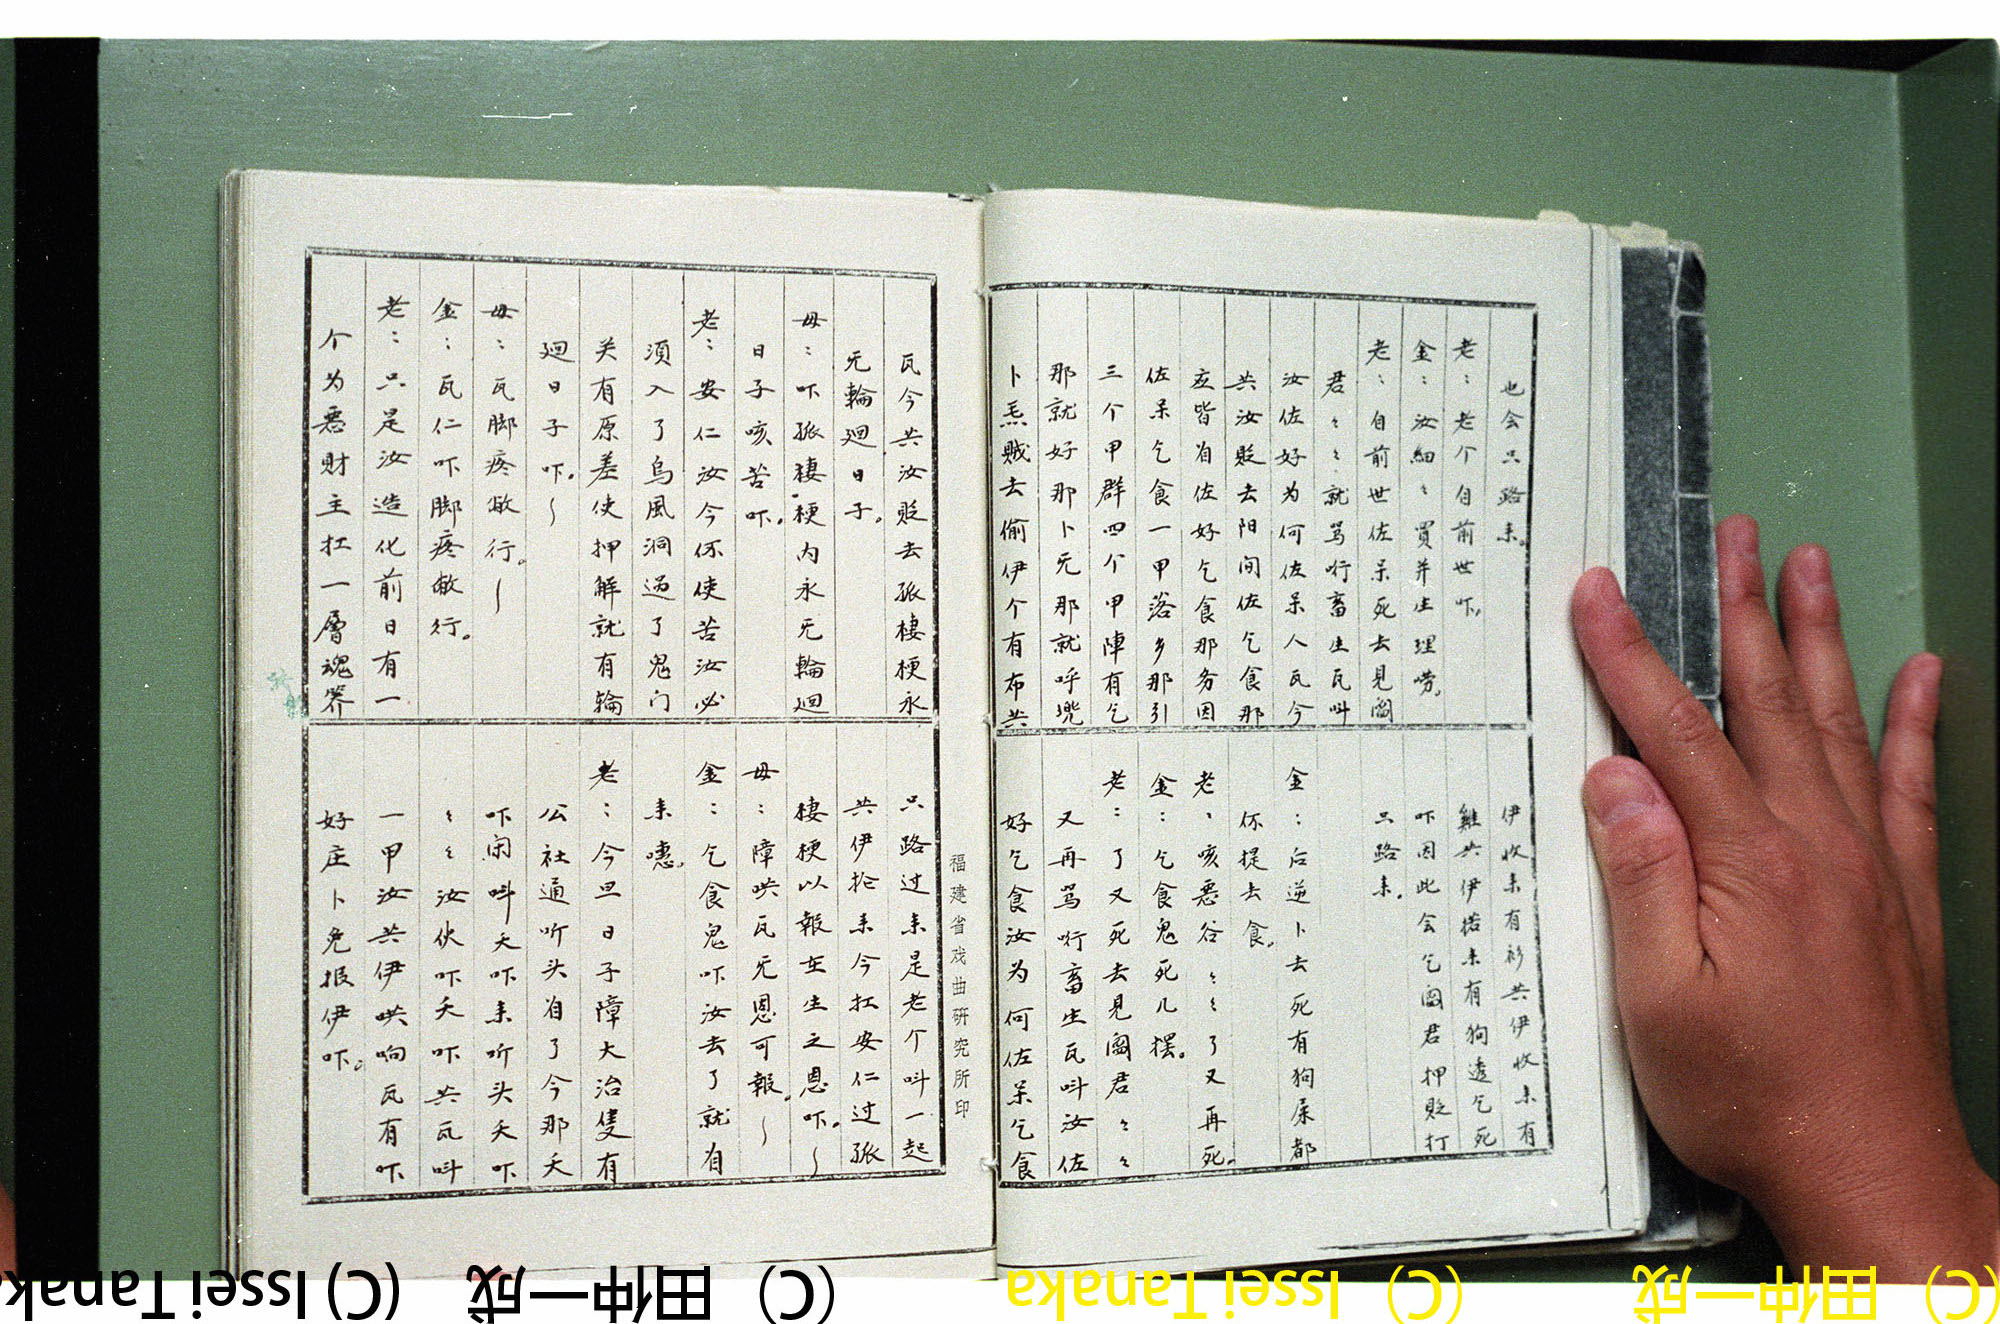 也会只路来。
老：老个自前世吓，
金：汝細〻買并生理嘮。
老：自前世佐呆死去見阎
君〻〻就骂行畜生瓦叫
汝佐好为何佐呆人瓦今
共汝贬去阳间佐乞食那
应皆有佐好乞食那务因
佐呆乞食一甲落乡那引
三个甲群四个甲陣有乞
那就好那卜无那就呼
卜 贼去偷伊个有布共
伊收来有衫共伊收来有
雞共伊 来有狗 乞死
吓因此会乞阎君押贬打
只路来。
金：后逆卜去死有狗屎都
伓提去食。
老、咳恶谷〻〻了又再死。
金：乞食鬼死儿摆。
老：了又死去見阎君〻〻
又再骂行畜生瓦叫汝佐
好乞食汝为何佐呆乞食
瓦今共汝贬去孤棲梗永
无輪廻日子。
母：吓孤棲梗内永无輪廻
日子咳苦吓。
老：安仁汝今伓使苦汝必
須入了烏風洞过了鬼门
关有原差使押解就有輪
廻日子吓。〜
母：瓦脚疼敝行。〜
金：瓦仁吓脚疼敝行。
老：只是汝造化前日有一
个为恶財主扛一層魂
只路过来是老个叫一起
共伊抡来今扛安仁过孤
棲梗以報在生之恩吓。〜
母：障哄瓦无恩可報。〜
金：乞食鬼吓汝去了就有
来嚏。
老：今旦日子障大治隻有
公社通听头有了今那夭
吓闲叫夭吓来听头夭吓
〻〻汝伙吓夭吓共瓦叫
一甲汝共伊哄响瓦有吓
好庄卜免报伊吓。
福建省戏曲研究所印
(C) Issei Tanaka
(C) 田仲一成
(C) Issei Tanaka
(C) 田仲一成